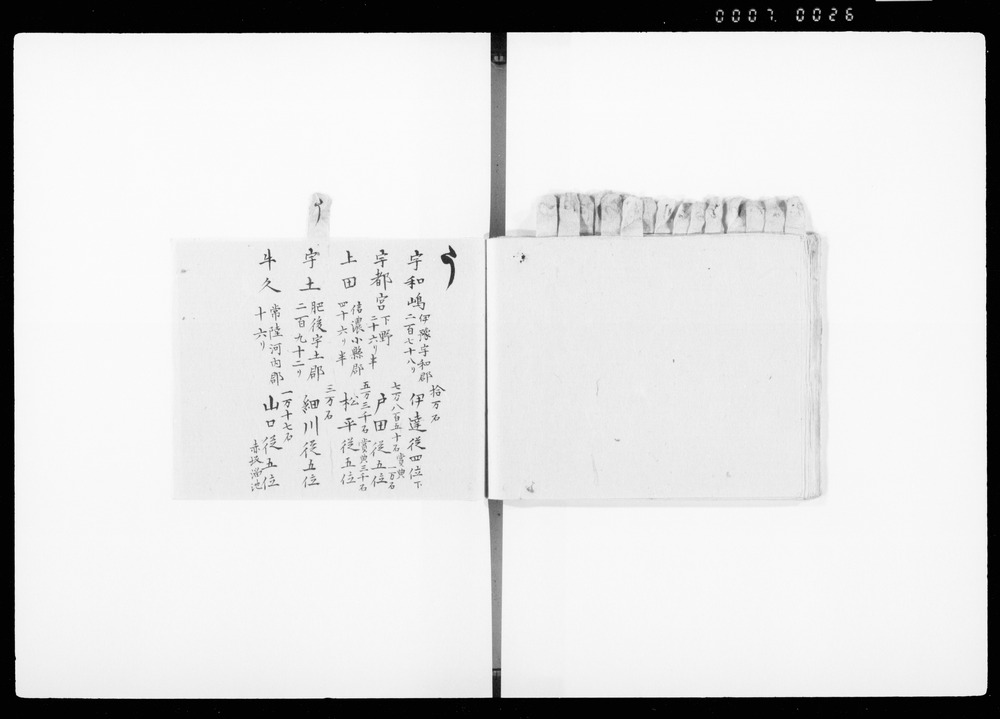 0007 0026
う
宇和嶋 伊豫宇和郡 二百七十八リ 拾万石 伊達従四位下
宇都宮 下野 二十六リ半 七万八百五十石 賞典一万石 戸田従五位
上田 信濃小縣郡 四十六リ半 五万三千石 賞典三千石 松平従五位
宇土 肥後宇土郡 二百九十二リ 三万石 細川従五位
牛久 常陸河内郡 十六リ 一万十七石 山口従五位 赤坂溜池
う